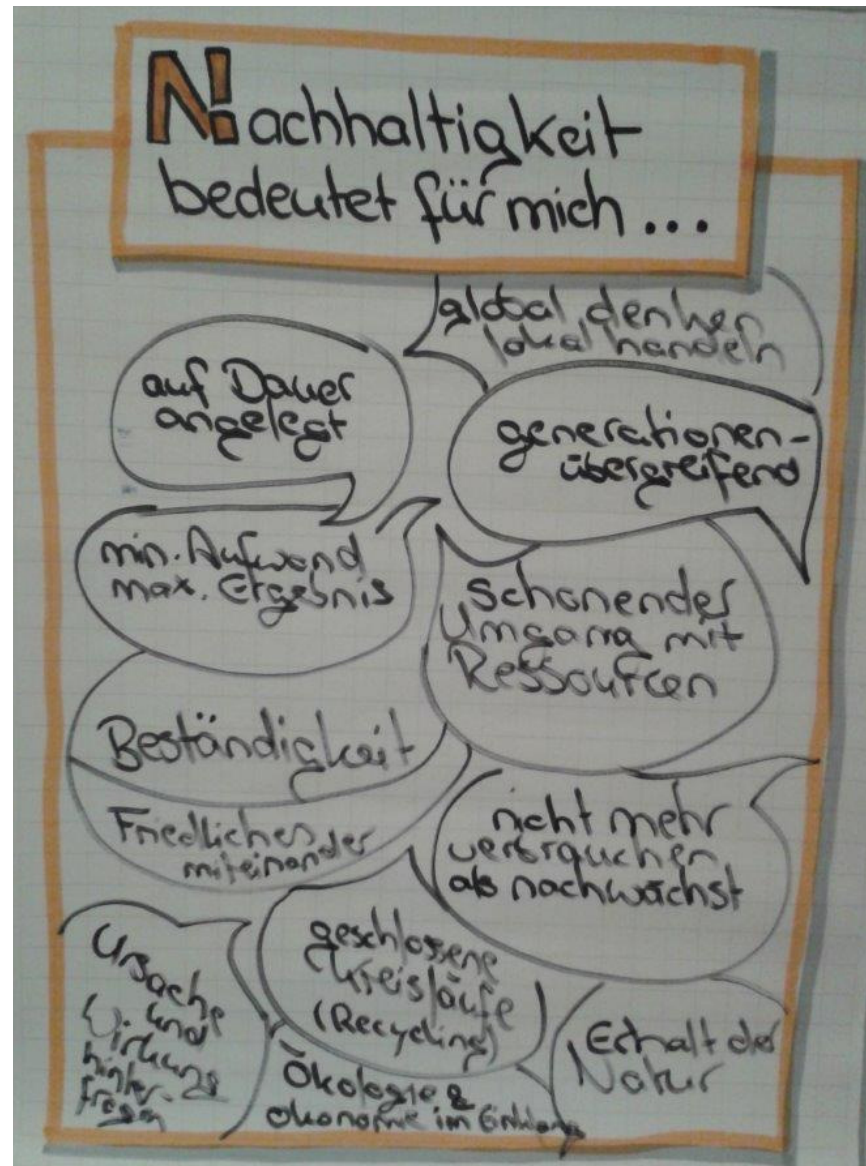 Nachhaltigkeit
bedeutet für mich ...
global denken
lokal handeln
auf Dauer
angelegt
generationen-
übergreifend
min. Aufwand
max. Ergebnis
schonender
Umgang mit
Ressourcen
Beständigkeit
Friedliches
miteinander
nicht mehr
verbrauchen
als nachwächst
Ursache
und
Wirkung
hinter-
fragen
geschlossene
Kreisläufe
(Recycling)
Ökologie &
Ökonomie im Einklang
Erhalt der
Natur